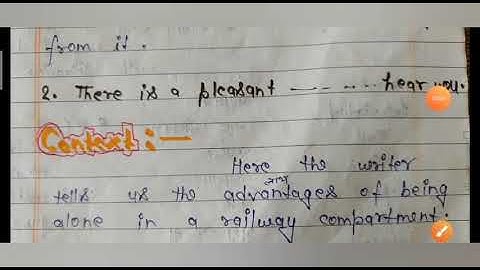 from it.
2. There is a pleasant —— .... hear you.
Context :—
Here the writer
लाभ
tells us the advantages of being
alone in a railway compartment.